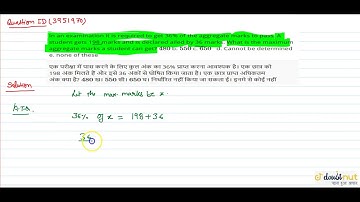 Question ID (3951970)
In an examination it is required to get 36% of the aggregate marks to pass. A
student gets 198 marks and is declared failed by 36 marks. What is the maximum
aggregate marks a student can get? 480 b. 550 c. 650 d. Cannot be determined
e. none of these
एक परीक्षा में पास करने के लिए कुल अंक का 36% प्राप्त करना आवश्यक है। एक छात्र को
198 अंक मिलते हैं और इसे 36 अंकों से घोषित किया जाता है। एक छात्र प्राप्त अधिकतम
अंक क्या है? 480 बी। 550 सी। 650 घ। निर्धारित नहीं किया जा सकता है। इनमें से कोई नहीं
Solution
Let the max. marks be x.
ATQ.
36% of x = 198+36
36
doubtnut